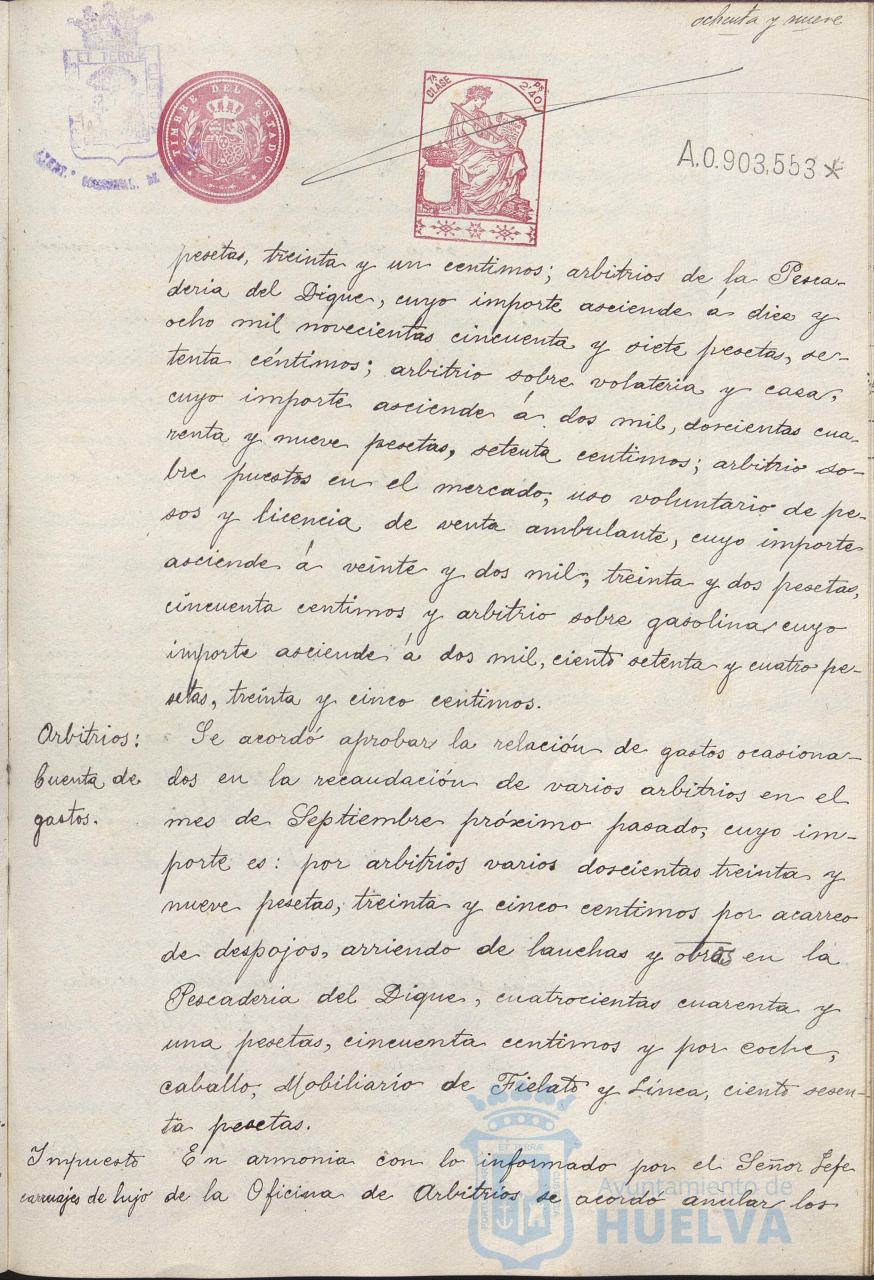 ochenta y nueve
ET TERRÆ
CUSTODIA
TIMBRE DEL ESTADO
7ª CLASE
PS 2'40
A.0.903,553*
pesetas, treinta y un centimos; arbitrios de la Pesca-
deria del Dique, cuyo importe asciende á diez y
ocho mil novecientas cincuenta y siete pesetas, se-
tenta céntimos; arbitrio sobre volateria y caza,
cuyo importe asciende á dos mil, doscientas cua-
renta y nueve pesetas, setenta centimos; arbitrio so-
bre puestos en el mercado, uso voluntario de pe-
sos y licencia de venta ambulante, cuyo importe
asciende á veinte y dos mil, treinta y dos pesetas,
cincuenta centimos y arbitrio sobre gasolina cuyo
importe asciende á dos mil, ciento setenta y cuatro pe-
setas, treinta y cinco centimos.
Arbitrios:
Cuenta de
gastos.
Se acordó aprobar la relación de gastos ocasiona-
dos en la recaudación de varios arbitrios en el
mes de Septiembre próximo pasado, cuyo im-
porte es: por arbitrios varios doscientas treinta y
nueve pesetas, treinta y cinco centimos por acarreo
de despojos, arriendo de lanchas y obras en la
Pescaderia del Dique, cuatrocientas cuarenta y
una pesetas, cincuenta centimos y por coche,
caballo, Mobiliario de Fielato y Línea, ciento sesen-
ta pesetas.
Impuesto
carruajes de lujo
En armonia con lo informado por el Señor Jefe
de la Oficina de Arbitrios se acordó anular los
ET TERRÆ
Ayuntamiento de
HUELVA